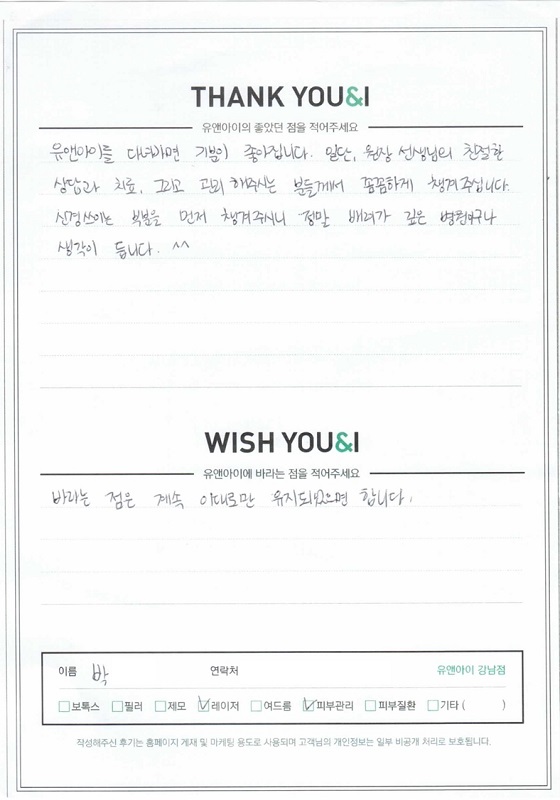 THANK YOU&I
유앤아이의 좋았던 점을 적어주세요
유앤아이를 다녀가면 기분이 좋아집니다. 일단, 원장 선생님의 친절한
상담과 치료, 그리고 관리 해주시는 분들께서 꼼꼼하게 챙겨 주십니다.
신경쓰이는 부분을 먼저 챙겨주시니 정말 배려가 깊은 병원이구나
생각이 듭니다. ^^
WISH YOU&I
유앤아이에 바라는 점을 적어주세요
바라는 점은 계속 이대로만 유지되었으면 합니다.
이름 박 연락처 유앤아이 강남점
보톡스 필러 제모 레이저 여드름 피부관리 피부질환 기타 ( )
작성해주신 후기는 홈페이지 게재 및 마케팅 용도로 사용되며 고객님의 개인정보는 일부 비공개 처리로 보호됩니다.